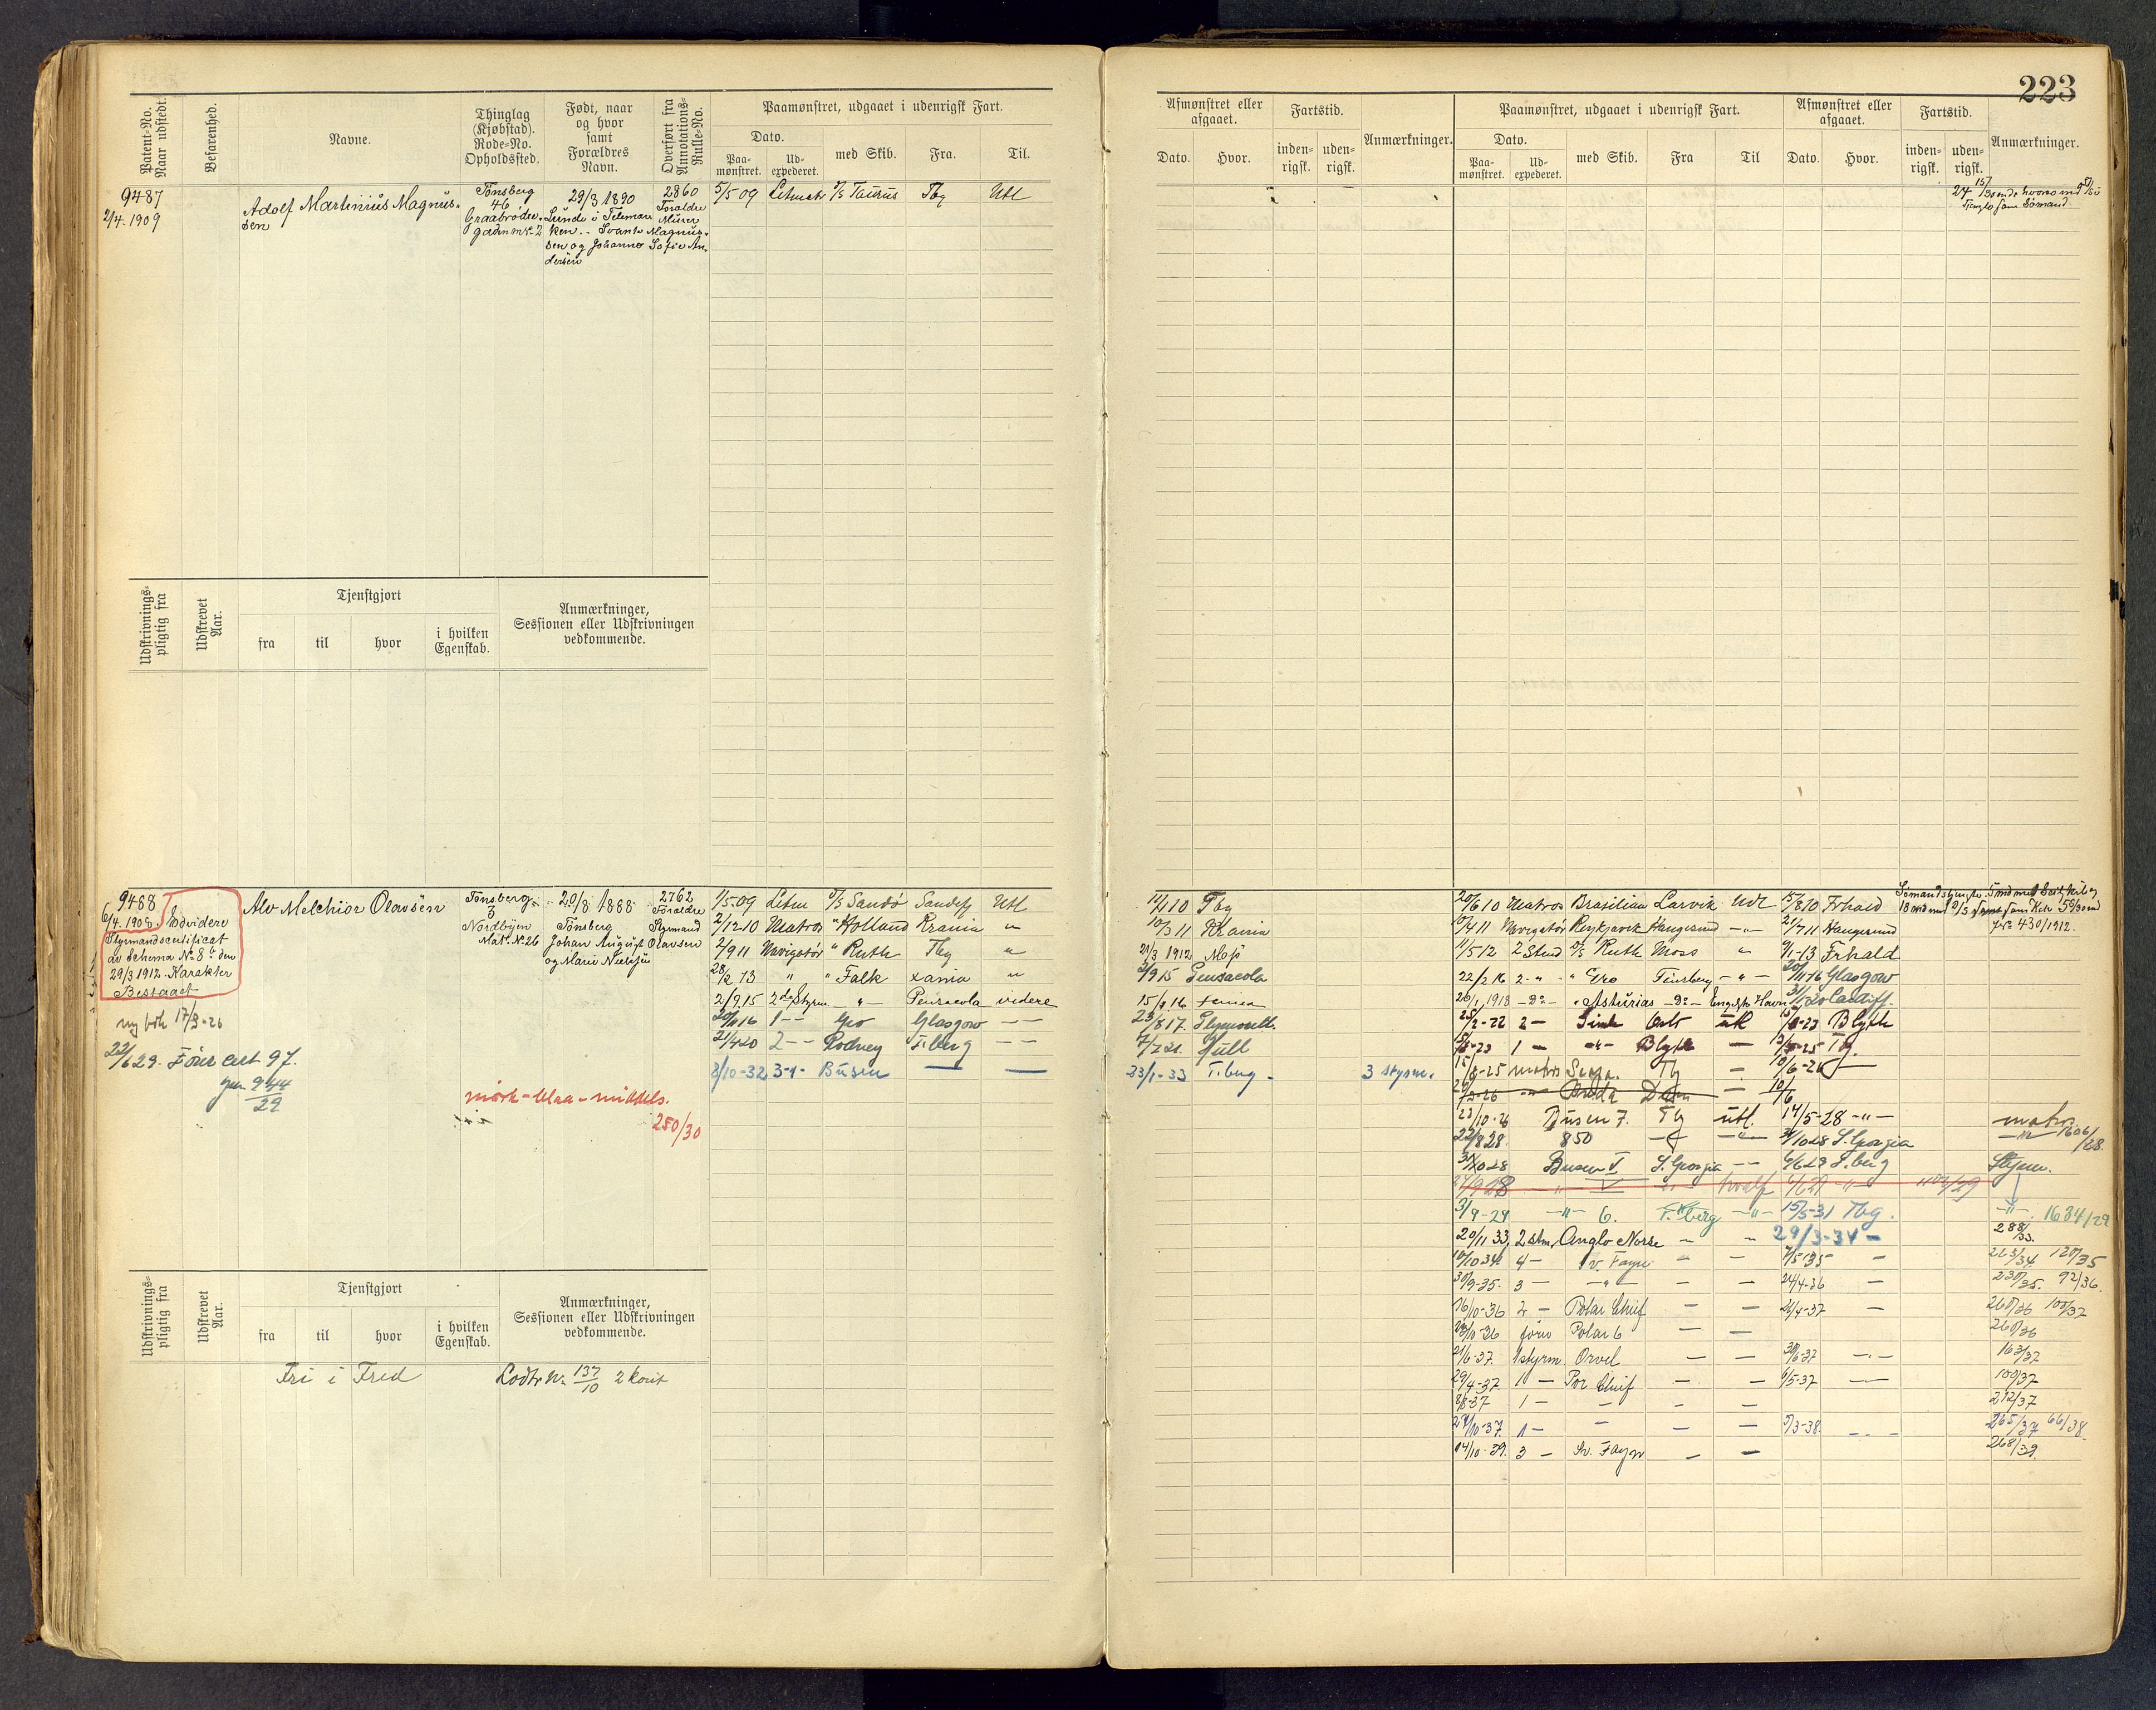 223
Patent-No. Naar udstedt.
Befarenhed.
Navne.
Thinglag (Kjøbstad). Rode-No. Opholdssted.
Født, naar og hvor samt Forældres Navn.
Overført fra Annotations-Rulle-No.
Paamønstret, udgaaet i udenrigsk Fart.
Dato.
Paa-mønstret.
Ud-expederet.
med Skib.
Fra.
Til.
Afmønstret eller afgaaet.
Dato.
Hvor.
Fartstid.
inden-rigsk.
uden-rigsk.
Anmærkninger.
Paamønstret, udgaaet i udenrigsk Fart.
Dato.
Paa-mønstret.
Ud-expederet.
med Skib.
Fra
Til
Afmønstret eller afgaaet.
Dato.
Hvor.
Fartstid.
inden-rigsk.
uden-rigsk.
Anmærkninger.
9487
2/4. 1909
Adolf Martinius Magnus-
sen
Tønsberg
46
Graabrødre-
gaden nr. 2
29/3 1890
Lunde i Telemar
ken. - Svante Magnus-
sen og Johanne Sofie An-
dersen
2860
Forældre
Murer
5/5 09 Letmatr S/S Taurus Tbg Utl
Udskrivnings-pligtig fra
Udskrevet Aar.
Tjenstgjort
fra
til
hvor
i hvilken Egenskab.
Anmærkninger, Sessionen eller Udskrivningen vedkommende.
9488
6/4. 1908. Endvidere
Styrmandscertificat
av Schema No 8 b den
29/3 1912. Karakter
Bestaaet
ny bok 17/3-26
22/6 29. Fører cert 97.
944
29
Alv Melchior Olavsen
Tønsberg
Nordbyen
Matr. N. 26
20/8 1888
Tønsberg
Johan August Olavsen
og Marie Nielsen
2762
Forældre
Styrmand
mørk - blaa - middels.
250/30
1/5 09 Letm S/S Sandø Sandefj Utl
2/12 10 Matros " Holland Krania "
2/9 11 Navigatør " Ruth Tbg "
28/2 13 " " Falk xania "
2/9.15 2den Styrm - " - Pensacola videre
20/11 16 1 - - Gro Glasgow - -
21/4 20 2 - - Rodney T.berg - -
8/10-32 3-1- Busen — —
11/1 10 Tbg
10/3 11 Krania
21/3 1912 Moss
2/9 15 Pensacola
15/1 16
23/8 17. Plymouth.
7/7 21. Hull
23/1-33 T.berg - 3 styrm.
20/6 10 Matros Brasilian Larvik Udl 15/8 10 Frhald
10/4 11 Navigatør Reykjavik Haugesund - " - 21/7 11 Haugesund
430/1912.
11/5 12 2 Stmd S/S Ruth Moss " 9/1-13 Frhald
22/2 16 2 - " - " Gro Tønsberg - " - 20/11 16 Glasgow
20/1 1918 - Do - " Asturias - Do - Engelsk Havn Cardiff.
25/2-22 2 - Oslo utl 23 Blyth
23 1 - - " - Blyth — 25 Tbg.
15/8-25 matros Tbg — 10/6-26
23/10-26 Busen 7. Tbg utl. 14/5-28 - " - matros
22/8 28 850 31/10 28 S. Georgia - " - 1606/28.
31/10 28 Busen V S. Georgia - - 6/6 29 T.berg Styrm.
27/9 28 - " - V hvalf 6/6 29 "
3/9-29 - " - 6. T.berg - " - 15/5-31 Tbg. - " - 1634/29
20/11 33, 2 stm, Anglo Norse - - 29/3-34 - 288/33.
10/10 34 4 - Sv. Foyn - - 7/5 35 - 223/34 120/35
30/9-35. 3 - - " - - - 24/4-36 - 230/35. 92/36.
16/10-36 2 - Polar Chief - - 24/4-37 - 260/36 100/37
fører Polar 6 - - 260/36
21/6-37 1 styrm. Orvel - - 30/6-37 - " - 163/37
29/4-37. 1 - Pol Chief - - 6/5-37 - 100/37
8/8-37 1 - - - - 212/37
27/10-37. 1 - - - - 5/3-38. - - - 265/37 66/38.
14/10-39. 3 - Sv. Foyn - - 268/39.
Udskrivnings-pligtig fra
Udskrevet Aar.
Tjenstgjort
fra
til
hvor
i hvilken Egenskab.
Anmærkninger, Sessionen eller Udskrivningen vedkommende.
Fri i Fred
Lodtr N. 137/10 2 kont